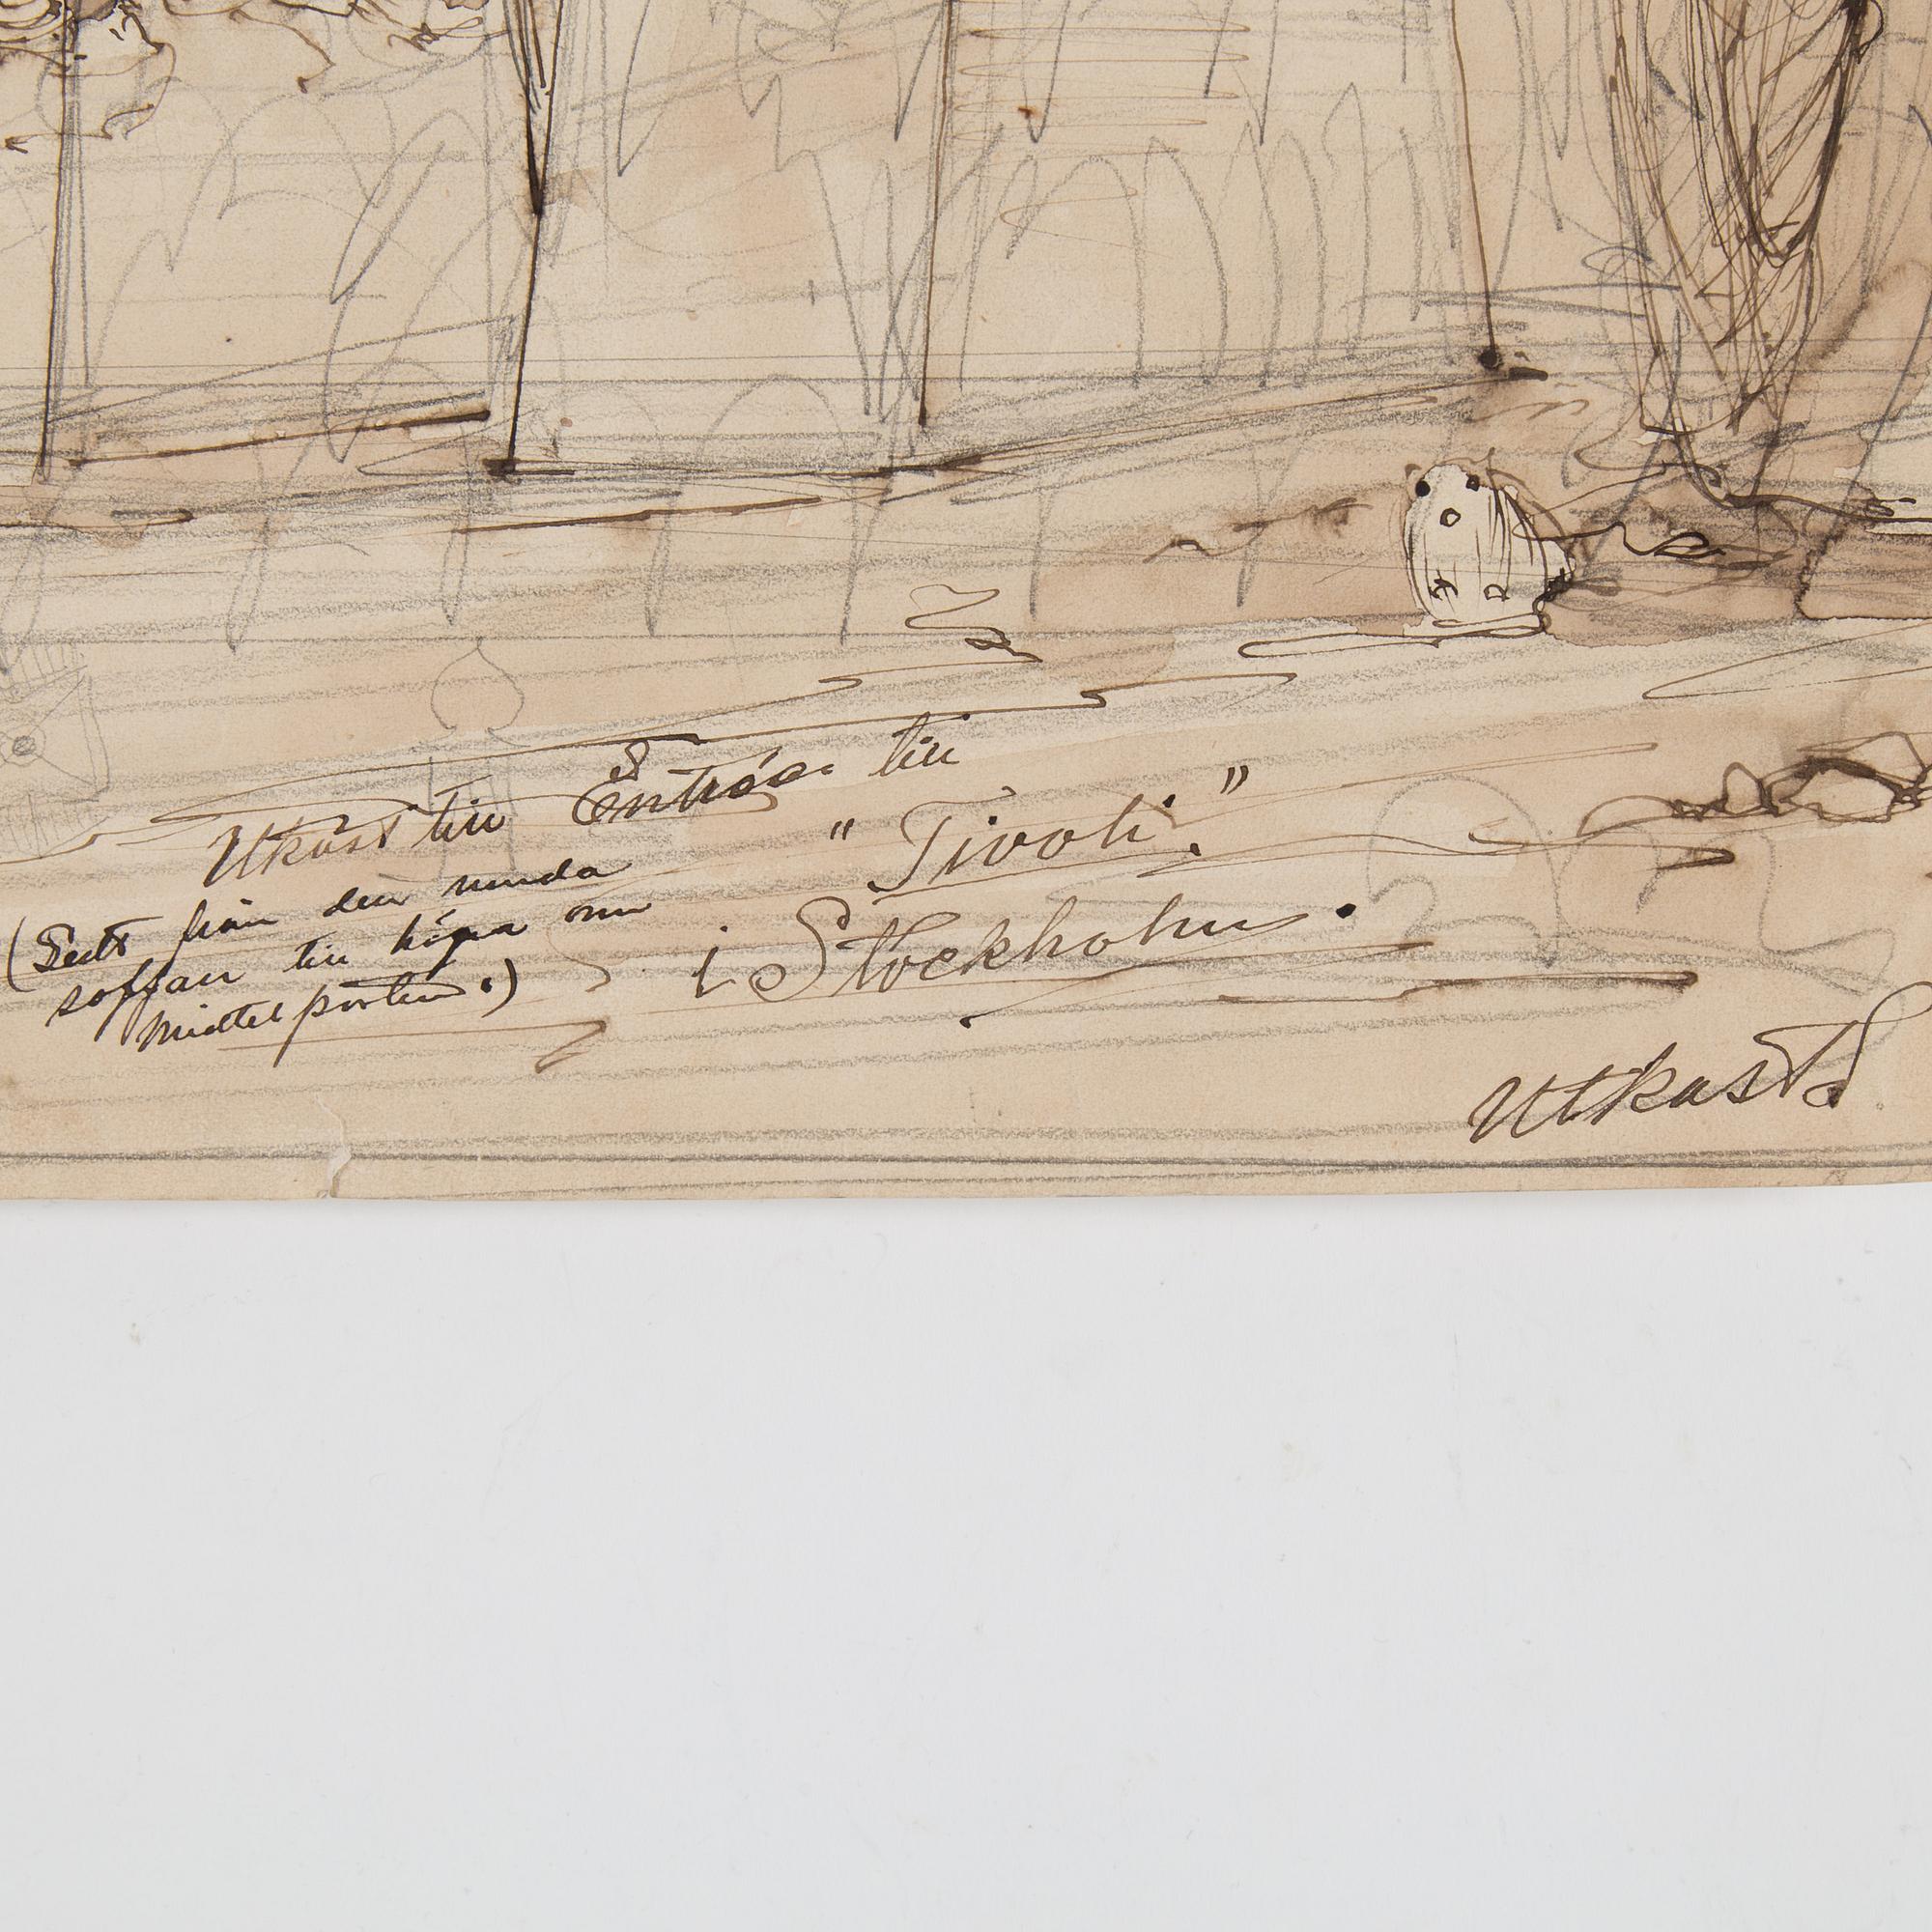 Utkast till Entréen till
"Tivoli."
i Stockholm.
(Sedt från den runda
soffan till höger om
Mittelporten.)
Utkast.